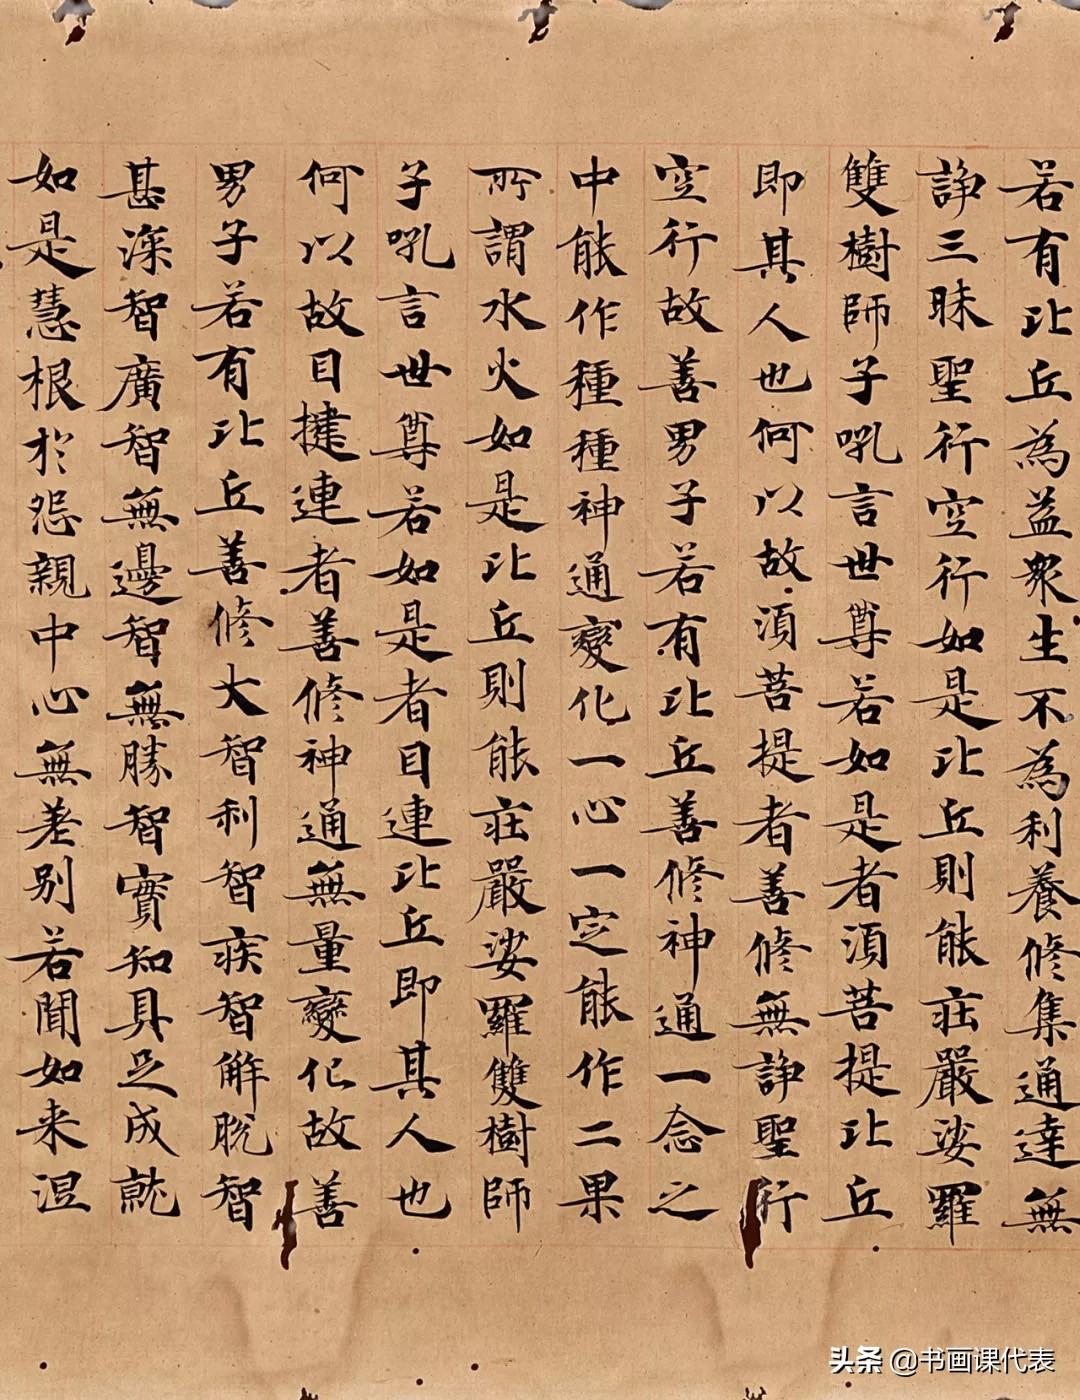 若有比丘為益眾生不為利養修集通達無
諍三昧聖行空行如是比丘則能莊嚴娑羅
雙樹師子吼言世尊若如是者須菩提比丘
即其人也何以故須菩提者善修無諍聖行
空行故善男子若有比丘善修神通一念之
中能作種種神通變化一心一定能作二果
所謂水火如是比丘則能莊嚴娑羅雙樹師
子吼言世尊若如是者目連比丘即其人也
何以故目揵連者善修神通無量變化故善
男子若有比丘善修大智利智疾智解脫智
甚深智廣智無邊智無勝智實知具足成就
如是慧根於怨親中心無差別若聞如来涅
头条 @书画课代表